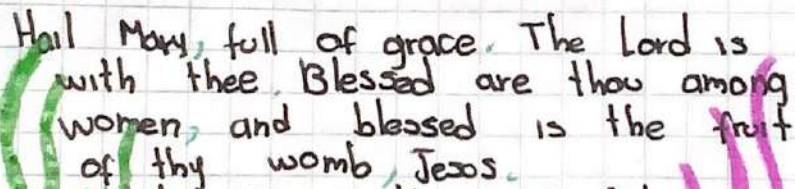 Hail Mary, full of grace. The Lord is
with thee. Blessed are thou among
women, and blessed is the fruit
of thy womb, Jesus.